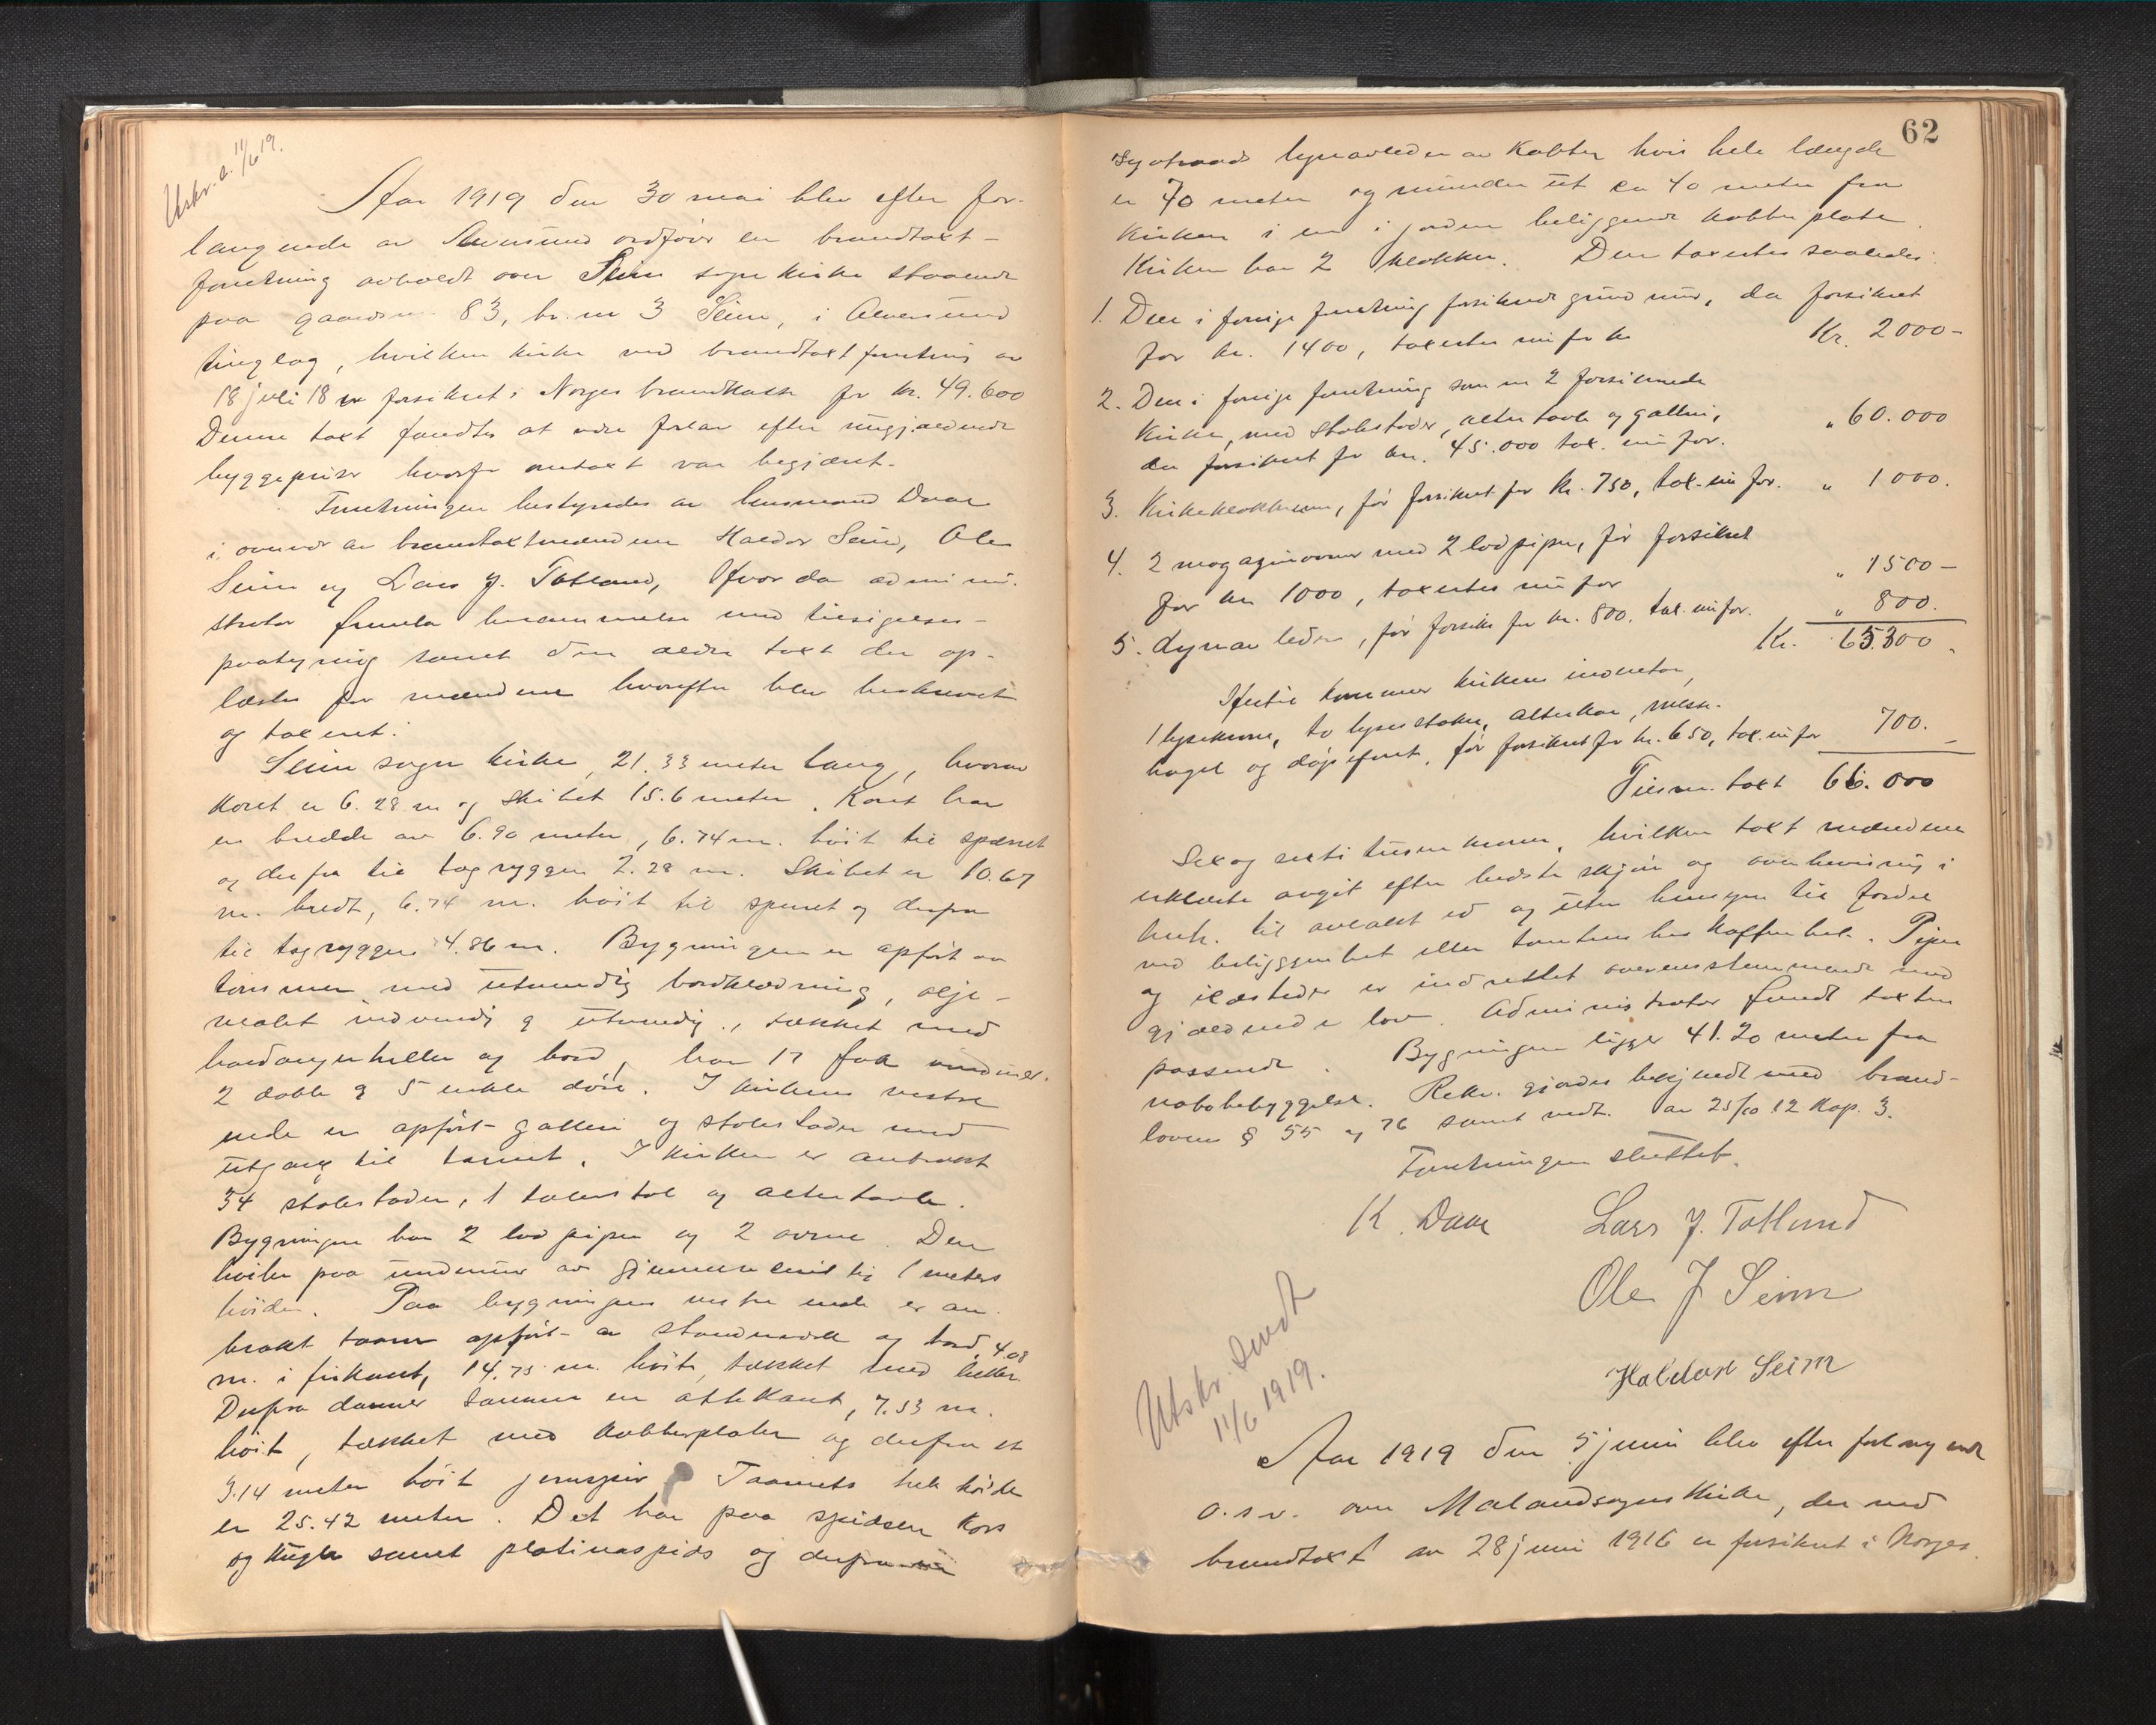 Utskr. a. 11/6 19.
Aar 1919 den 30 mai blev efter for-
langende av Alversund ordfører en brandtakst-
forretning avholdt over Seim sognekirke staaende
paa gaardsnr. 83, br.nr 3 Seim, i Alversund
tinglag, hvilken kirke ved brandtakstforretning av
18 juli 18 er forsikret i Norges brandkasse for kr. 49.600
Denne takst fandtes at være for lav efter nugjældende
byggepriser hvorfor omtakst var begjært.
Forretningen bestyredes av lensmand Daae
i overvær av brandtakstmændene Haldor Seim, Ole
Seim og Lars J. Totland, Hvorda admini-
strator fremla berammelse med tilsigelses-
paategning samt den ældre takst der op-
læstes for mændene hvorefter blev beskrevet
og taxeret:
Seim sogne kirke, 21.33 meter lang, hvorav
koret er 6.28 m og skibet 15.6 meter. Koret har
en bredde av 6.90 meter, 6.74 m. høit til spærret
og derfra til tagryggen 2.28 m. Skibet er 10.67
m. bredt, 6.74 m. høit til sperret og derfra
til tagryggen 4.86 m. Bygningen er opført av
tømmer med utvendig bordklædning, olje-
malet indvendig & utvendig, tækket med
hardangerheller og bord, har 17 fag vinduer.
2 doble & 5 enkle døre. I kirkens vestre
ende er opført galleri og stolestader med
utgang til taarnet. I kirken er anbrakt
34 stolestader, 1 talerstol og altertavle.
Bygningen har 2 lodpiper og 2 ovne. Den
hviler paa undermur av gjennemsnitlig 1 meters
høide. Paa bygningens vestre ende er an-
brakt taarn opført av standverk og bord, 4.08
m. i firkant, 14.75 m. høit, tækket med heller.
Derfra danner taarnet en ottekant, 7.53 m.
høit, tækket med kobberplater og derfra et
3.14 meter høit jernspir. Taarnets hele høide
er 25.42 meter. Det har paa spidsen kors
og kugle samt platinaspids og derfra en
62
lynavleder av kobber hvis hele længde
er 70 meter og munder ut ca 40 meter fra
kirken i en i jorden beliggende kobberplate.
Kirken har 2 klokker. Den taxertes saaledes:
1. Den i forrige forretning forsikrede grundmur, da forsikret
for kr. 1400, taxertes nu for kr Kr. 2000-
2. Den i forrige forretning som nr 2 forsikrede
kirke, med stolestader, altertavle og galleri,
da forsikret for kr. 45.000 tax. nu for. " 60.000
3. Kirkeklokkerne, før forsikret for kr. 750, tax. nu for. " 1000.
4. 2 magazinovner med 2 lodpiper, før forsikret
for kr 1000, taxertes nu for " 1500-
5. Lynavleder, før forsikr. for kr. 800, tax. nu for. " 800.
Kr. 65300.
Hertil kommer kirkens inventar,
1 lysekrone, to lysestaker, alterkar, messe-
hagel og døpefont, før forsikret for kr. 650, tax. nu for 700.-
Tilsm. takst 66.000
Sex og sexti tusen kroner, hvilken takst mændene
erklærte avgit efter bedste skjøn og overbevisning i
henh. til avlakt ed og uten hensyn til fordel
ved beliggenhet eller tomtens beskaffenhet. Piper
og ildsteder er indrettet overensstemmende med
gjældende lov. Administrator fandt taksten
passende. Bygningen ligger 41.20 meter fra
nabobebyggelse. Rekv. gjordes bekjendt med brand-
loven § 55 og 76 samt vedt. av 25/10 12 Kap. 3.
Forretningen sluttet.
K. Daae
Lars J. Totland
Ole J Seim
Haldor Seim
Utskr. sendt
11/6 1919.
Aar 1919 den 5 juni blev efter forlangende
o.s.v. over Meland sognekirke, der ved
brandtakst av 28 juni 1916 er forsikret i Norges